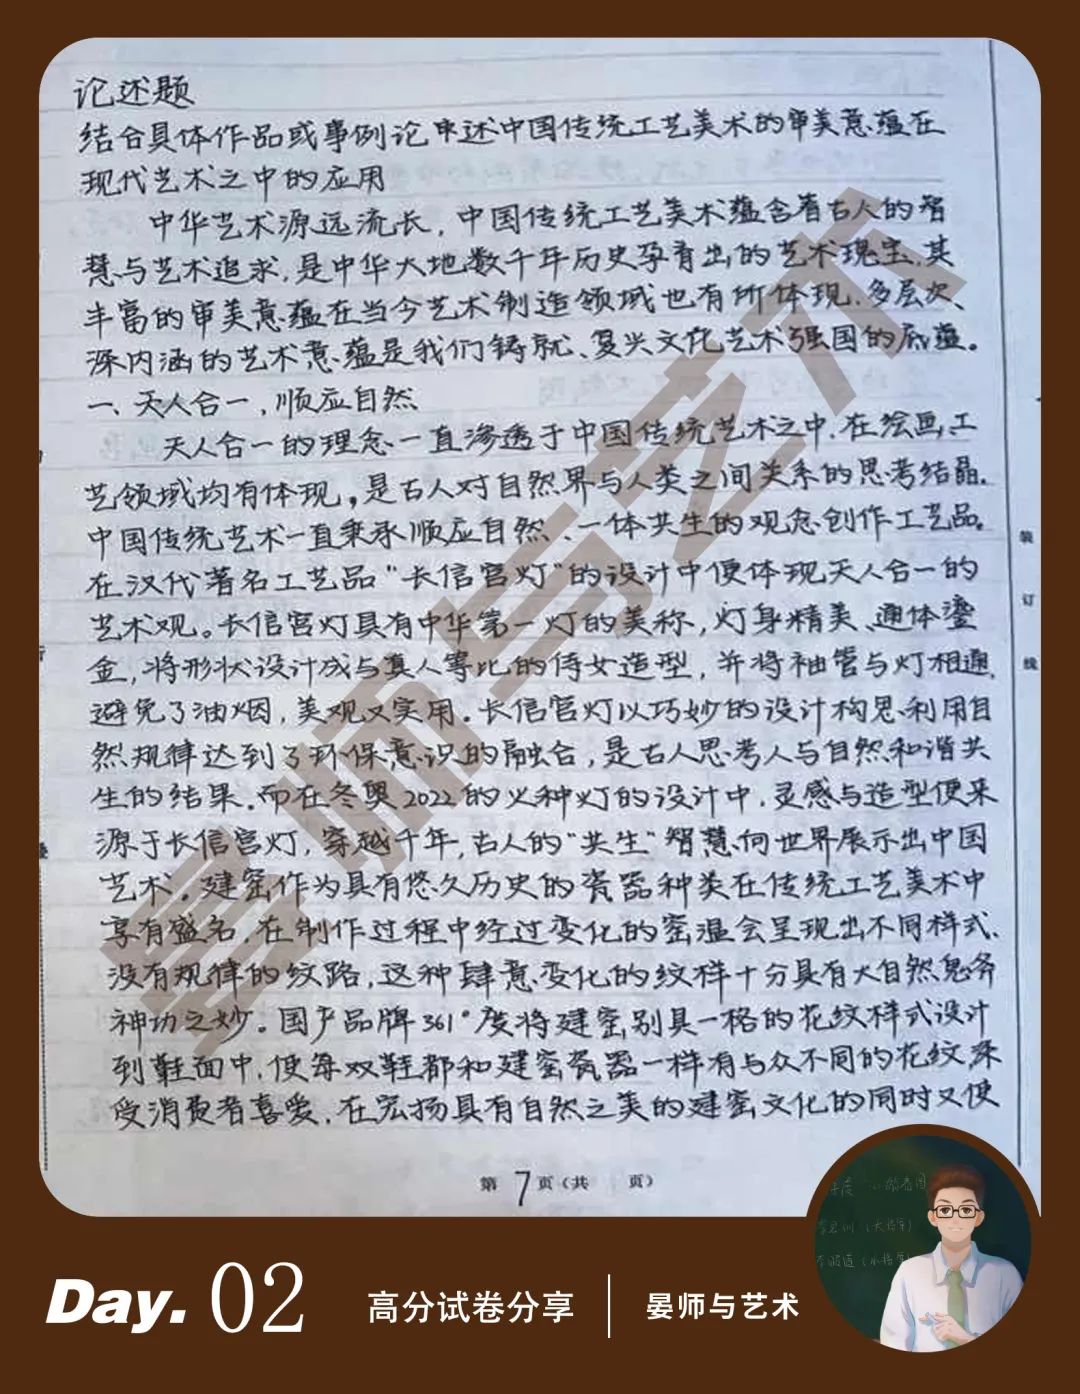 论述题
结合具体作品或事例论申述中国传统工艺美术的审美意蕴在
现代艺术之中的应用
中华艺术源远流长，中国传统工艺美术蕴含着古人的智
慧与艺术追求，是中华大地数千年历史孕育出的艺术瑰宝，其
丰富的审美意蕴在当今艺术制造领域也有所体现，多层次、
深内涵的艺术意蕴是我们铸就、复兴文化艺术强国的底蕴。
一、天人合一，顺应自然
天人合一的理念一直渗透于中国传统艺术之中，在绘画、工
艺领域均有体现，是古人对自然界与人类之间关系的思考结晶。
中国传统艺术一直秉承顺应自然、一体共生的观念创作工艺品。
在汉代著名工艺品“长信宫灯”的设计中便体现天人合一的
艺术观。长信宫灯具有中华第一灯的美称，灯身精美、通体鎏
金，将形状设计成与真人等比的侍女造型，并将袖管与灯相通，
避免了油烟，美观又实用。长信宫灯以巧妙的设计构思利用自
然规律达到了环保意识的融合，是古人思考人与自然和谐共
生的结果。而在冬奥2022的火种灯的设计中，灵感与造型便来
源于长信宫灯，穿越千年，古人的“共生”智慧向世界展示出中国
艺术。建窑作为具有悠久历史的瓷器种类在传统工艺美术中
享有盛名，在制作过程中经过变化的窑温会呈现出不同样式、
没有规律的纹路，这种肆意变化的纹样十分具有大自然鬼斧
神功之妙。国产品牌361°度将建窑别具一格的花纹样式设计
到鞋面中，使每双鞋都和建窑瓷器一样有与众不同的花纹深
受消费者喜爱，在宏扬具有自然之美的建窑文化的同时又便
第7页(共 页)
装
订
线
Day. 02
高分试卷分享
晏师与艺术
晏师与艺术